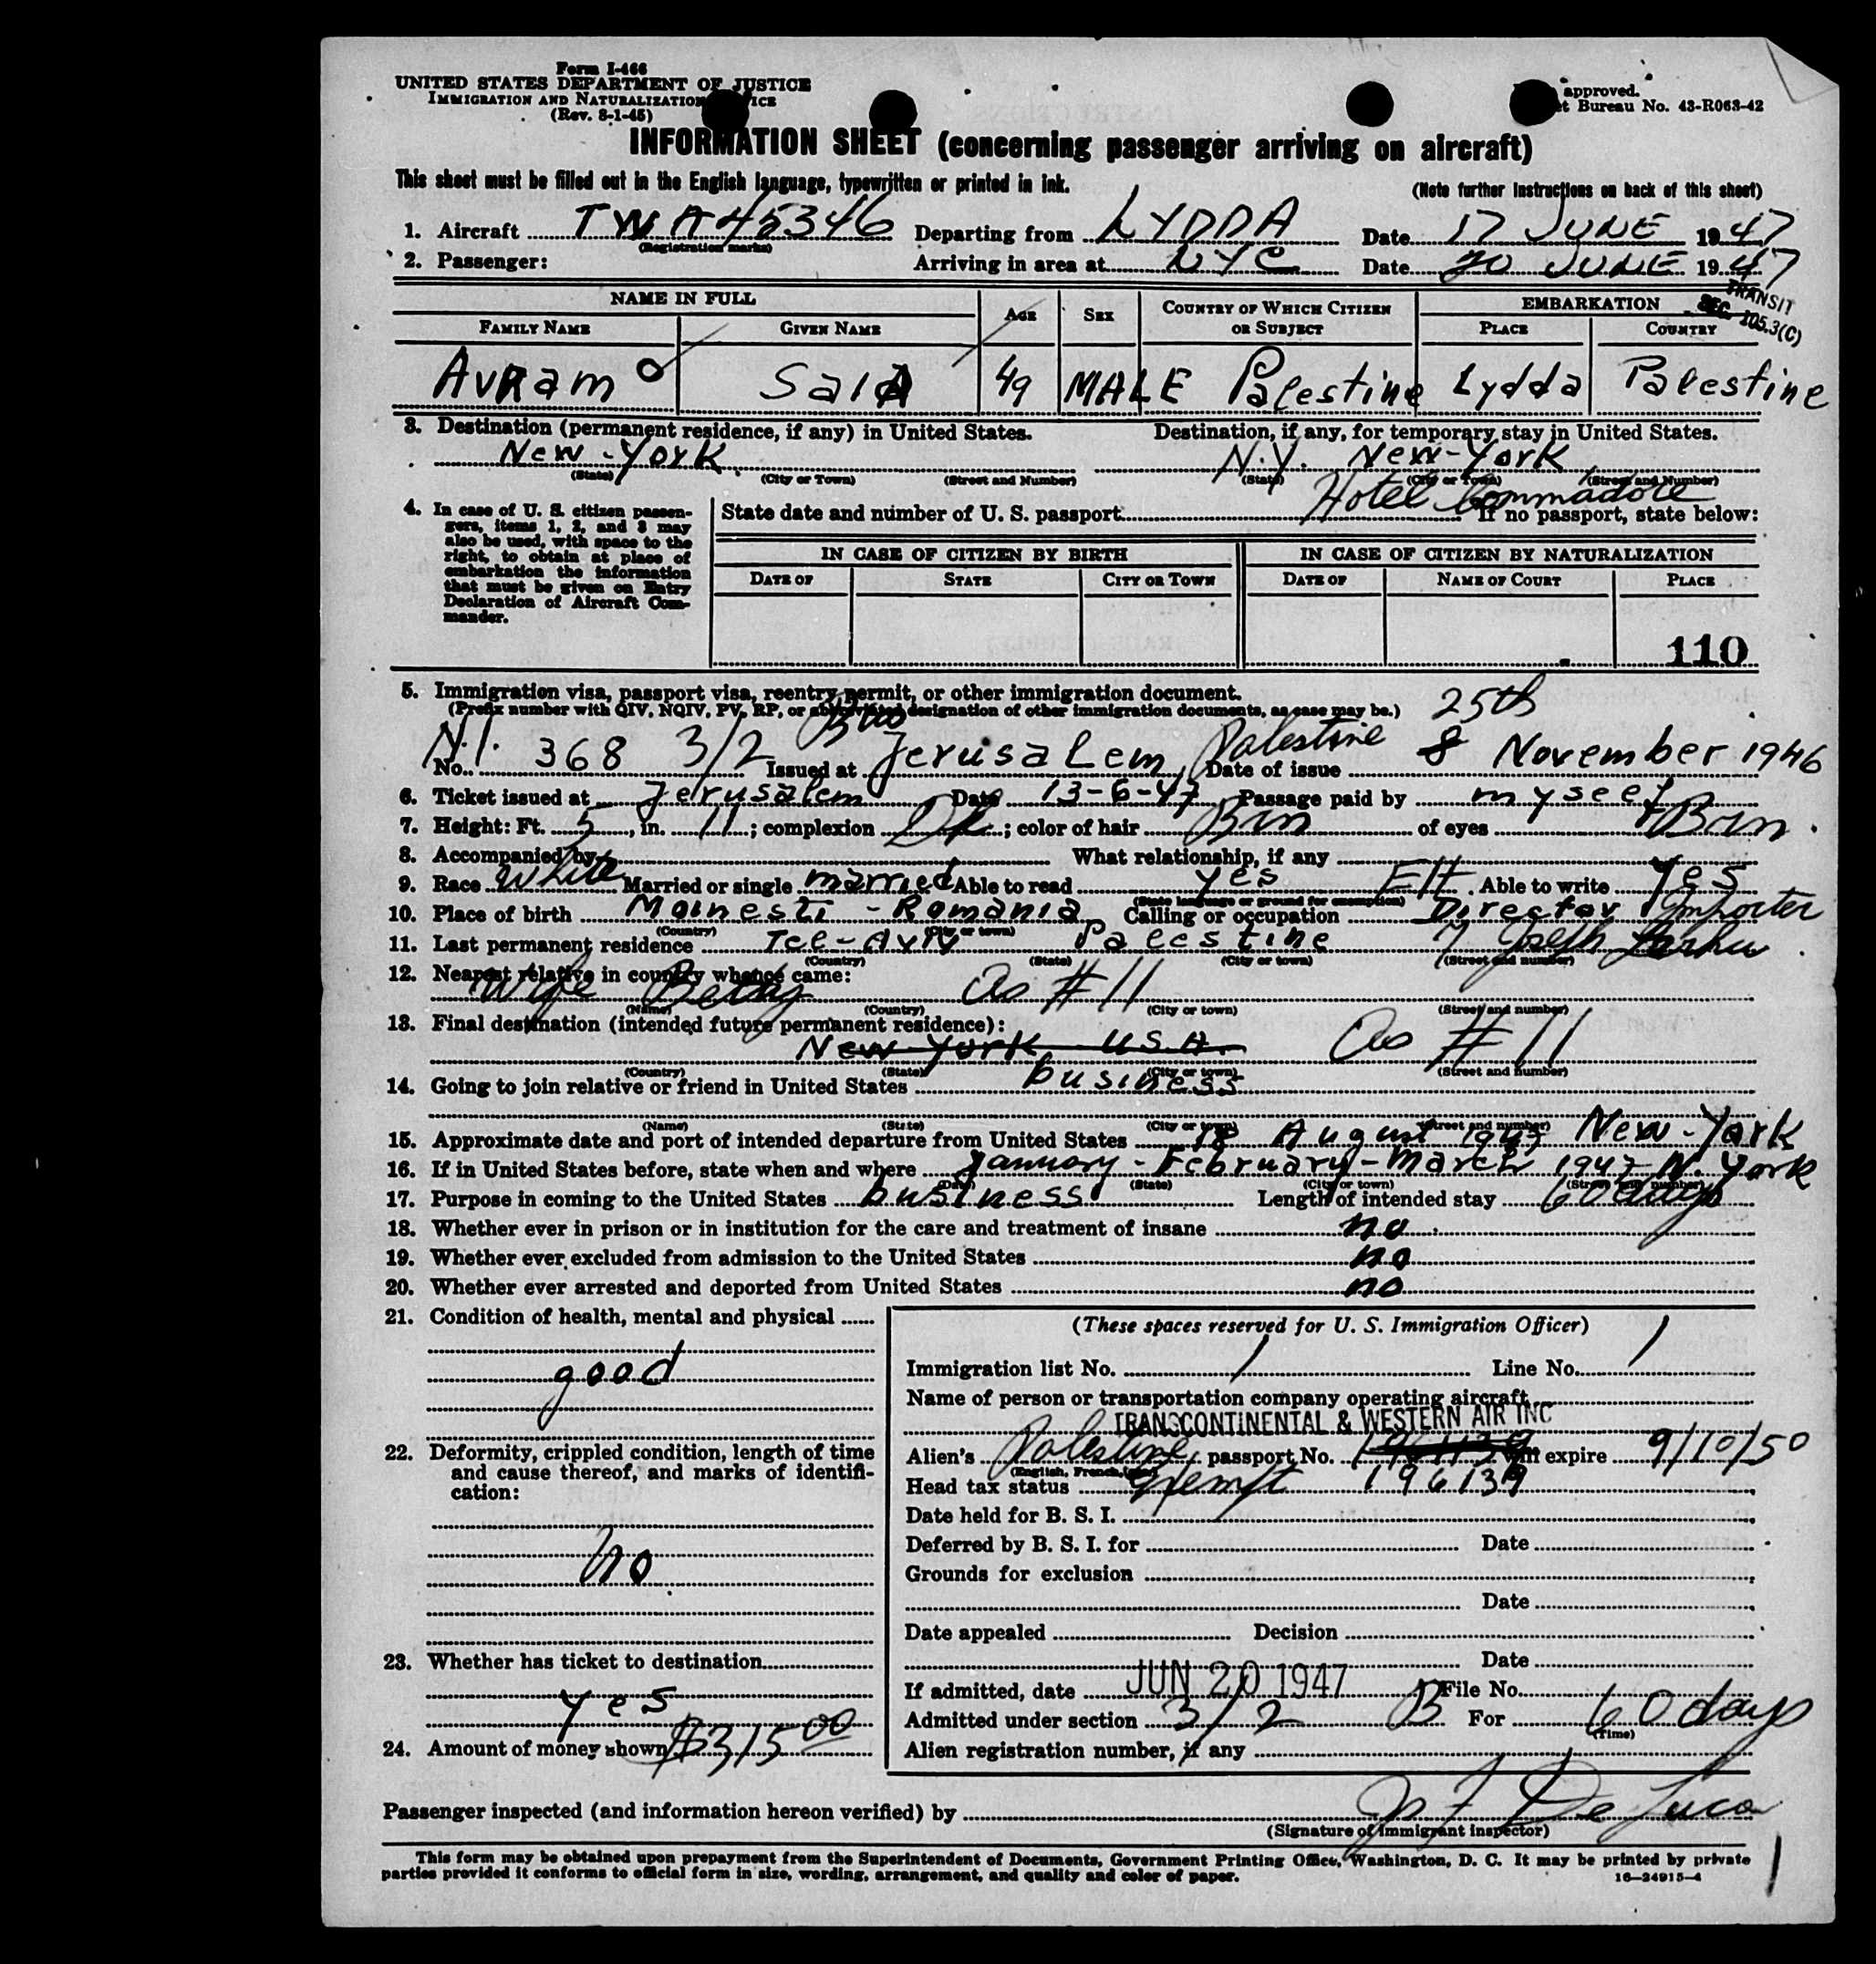 Form I-466
UNITED STATES DEPARTMENT OF JUSTICE
IMMIGRATION AND NATURALIZATION
(Rev. 8-1-45)
approved.
Bureau No. 43-R063-42
INFORMATION SHEET (concerning passenger arriving on aircraft)
This sheet must be filled out in the English language, typewritten or printed in ink.
(Note further instructions on back of this sheet)
1. Aircraft TWA 45346 Departing from LYDDA Date 17 JUNE 1947
(Registration marks)
2. Passenger: Arriving in area at NYC Date 20 JUNE 1947
TRANSIT
SEC. 105.3(C)
NAME IN FULL AGE SEX COUNTRY OF WHICH CITIZEN OR SUBJECT EMBARKATION
FAMILY NAME GIVEN NAME PLACE COUNTRY
Avram Sala 49 MALE Palestine Lydda Palestine
3. Destination (permanent residence, if any) in United States. Destination, if any, for temporary stay in United States.
New-York N.Y. New-York
(State) (City or Town) (Street and Number) (State) (City or Town) (Street and Number)
Hotel Commadore
4. In case of U. S. citizen passengers, items 1, 2, and 3 may also be used, with space to the right, to obtain at place of embarkation the information that must be given on Entry Declaration of Aircraft Commander.
State date and number of U. S. passport If no passport, state below:
IN CASE OF CITIZEN BY BIRTH IN CASE OF CITIZEN BY NATURALIZATION
DATE OF STATE CITY OR TOWN DATE OF NAME OF COURT PLACE
110
5. Immigration visa, passport visa, reentry permit, or other immigration document.
(Prefix number with QIV, NQIV, PV, RP, or abbreviated designation of other immigration documents, as case may be.) 25th
No. 368 3/2 Issued at Jerusalem, Palestine Date of issue 8 November 1946
6. Ticket issued at Jerusalem Date 13-6-47 Passage paid by myself
7. Height: Ft. 5, in. 11; complexion Dk; color of hair Brn of eyes Brn
8. Accompanied by What relationship, if any
9. Race White Married or single married Able to read yes Able to write Yes
(State language or ground for exemption)
10. Place of birth Moinesti - Romania Calling or occupation Director Importer
(Country) (City or town)
11. Last permanent residence Tel-Aviv Palestine 7
(Country) (State) (City or town) (Street and number)
12. Nearest relative in country whence came:
Wife Betty As #11
(Name) (Country) (City or town) (Street and number)
13. Final destination (intended future permanent residence):
New-York USA. As #11
(Country) (State) (City or town) (Street and number)
14. Going to join relative or friend in United States business
(Name) (State) (City or town) (Street and number)
15. Approximate date and port of intended departure from United States 18 August 1947 New-York
16. If in United States before, state when and where January-February-March 1947 N. York
(Date) (State) (City or town) (Street and number)
17. Purpose in coming to the United States business Length of intended stay 60 days
18. Whether ever in prison or in institution for the care and treatment of insane no
19. Whether ever excluded from admission to the United States no
20. Whether ever arrested and deported from United States no
21. Condition of health, mental and physical
good
22. Deformity, crippled condition, length of time and cause thereof, and marks of identification:
No
23. Whether has ticket to destination
yes
24. Amount of money shown $315.00
(These spaces reserved for U. S. Immigration Officer)
Immigration list No. 1 Line No. 1
Name of person or transportation company operating aircraft
TRANSCONTINENTAL & WESTERN AIR INC
Alien's Palestine passport No. will expire 9/10/50
Head tax status Exempt 196139
Date held for B. S. I.
Deferred by B. S. I. for Date
Grounds for exclusion
Date
Date appealed Decision
Date
If admitted, date JUN 20 1947 File No.
Admitted under section 3/2 B For 60 days
(Time)
Alien registration number, if any
Passenger inspected (and information hereon verified) by De Luca
(Signature of immigrant inspector)
This form may be obtained upon prepayment from the Superintendent of Documents, Government Printing Office, Washington, D. C. It may be printed by private
parties provided it conforms to official form in size, wording, arrangement, and quality and color of paper.
16-24915-4